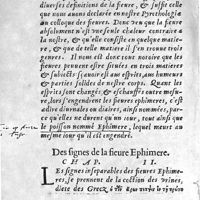 diuerses definitions de la fieure, & suyse celle
que nous auons declarée en nostre Pyrethologie
au colloque des fieures. Donc veu que la fieure
absolument n'est que seule chaleur contraire à
la nostre, & qu'elle consiste en quelque matie-
re, & que de telle matiere il s'en trouue trois
genres. Il nous est donc tout notoire que les
fieures peuuent estre situées en trois matieres
& subiects: sçauoir est aux esprits, aux humeurs
& parties solides de nostre corps. Quant les
esprits sont changés & eschauffés outre mesu-
re, lors s'engendrent les fieures ephimeres, c'est
à dire diurnales ou diaires, ainsi nommées,
au-tant qu'elles ne durent qu'un iour, ainsi que
le poisson nommé Ephimere, lequel meurt au
mesme iour qu'il est engendré.
Des signes de la fieure Ephimere.
CHAP. II.
Les signes inseparables des fieures Ephime-
res, se prennent de la coction des vrines,
dicte des Grecz,